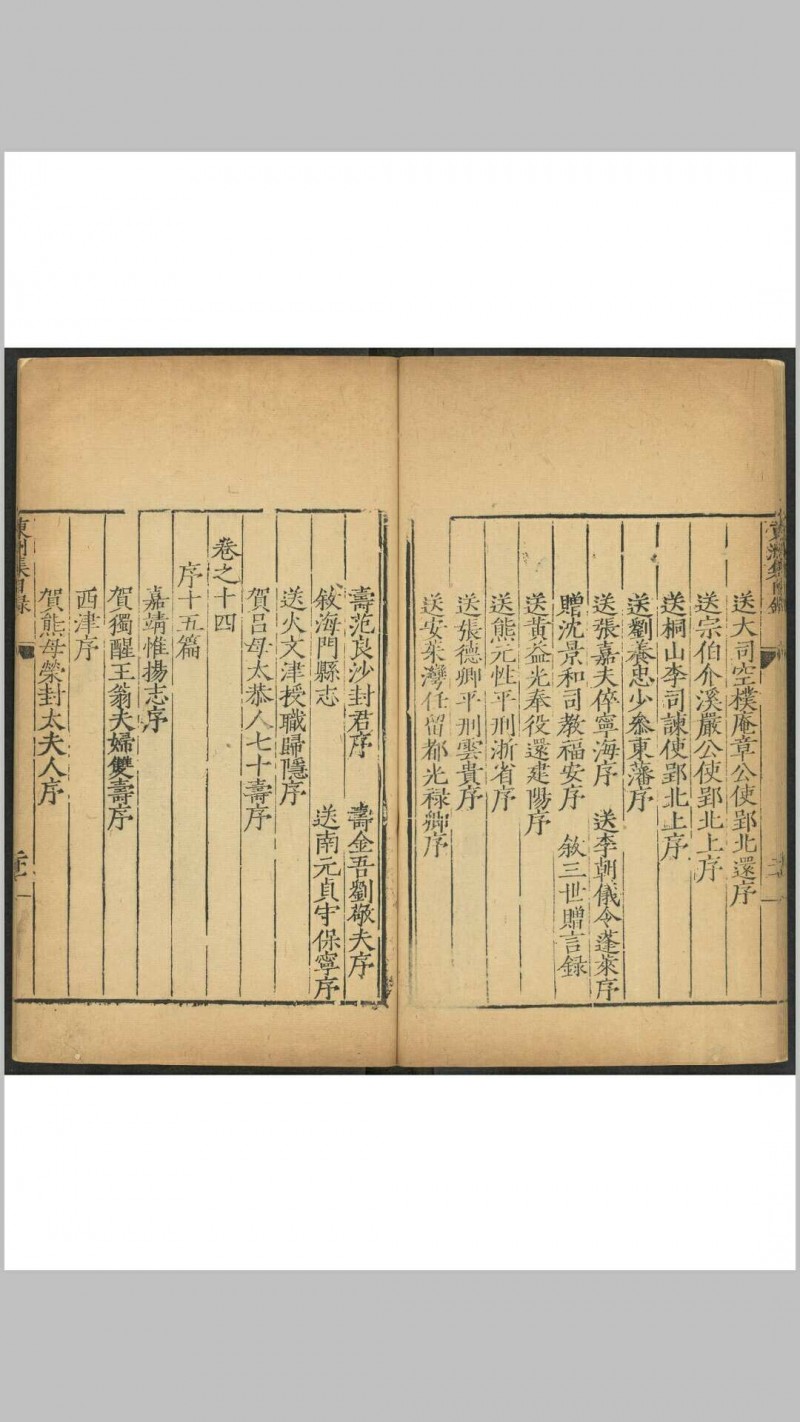 送大司空樸庵章公使郢北還序
送宗伯介溪嚴公使郢北上序
送桐山李司諫使郢北上序
送劉養忠少叅東藩序
送張嘉夫倅寧海序　送李朝儀令蓬萊序
贈沈景和司教福安序　敘三世贈言録
送黄益光奉役還建陽序
送熊元性平刑浙省序
送張德卿平刑雲貴序
送安萊灣任留都光禄卿序
壽范良沙封君序　壽金吾劉敬夫序
敘海門縣志　送南元貞守保寧序
送火文津授職歸隱序
賀吕母太恭人七十壽序
卷之十四
序十五篇
嘉靖惟揚志序
賀獨醒王翁夫婦雙壽序
西津序
賀熊母榮封太夫人序
東洲集目録